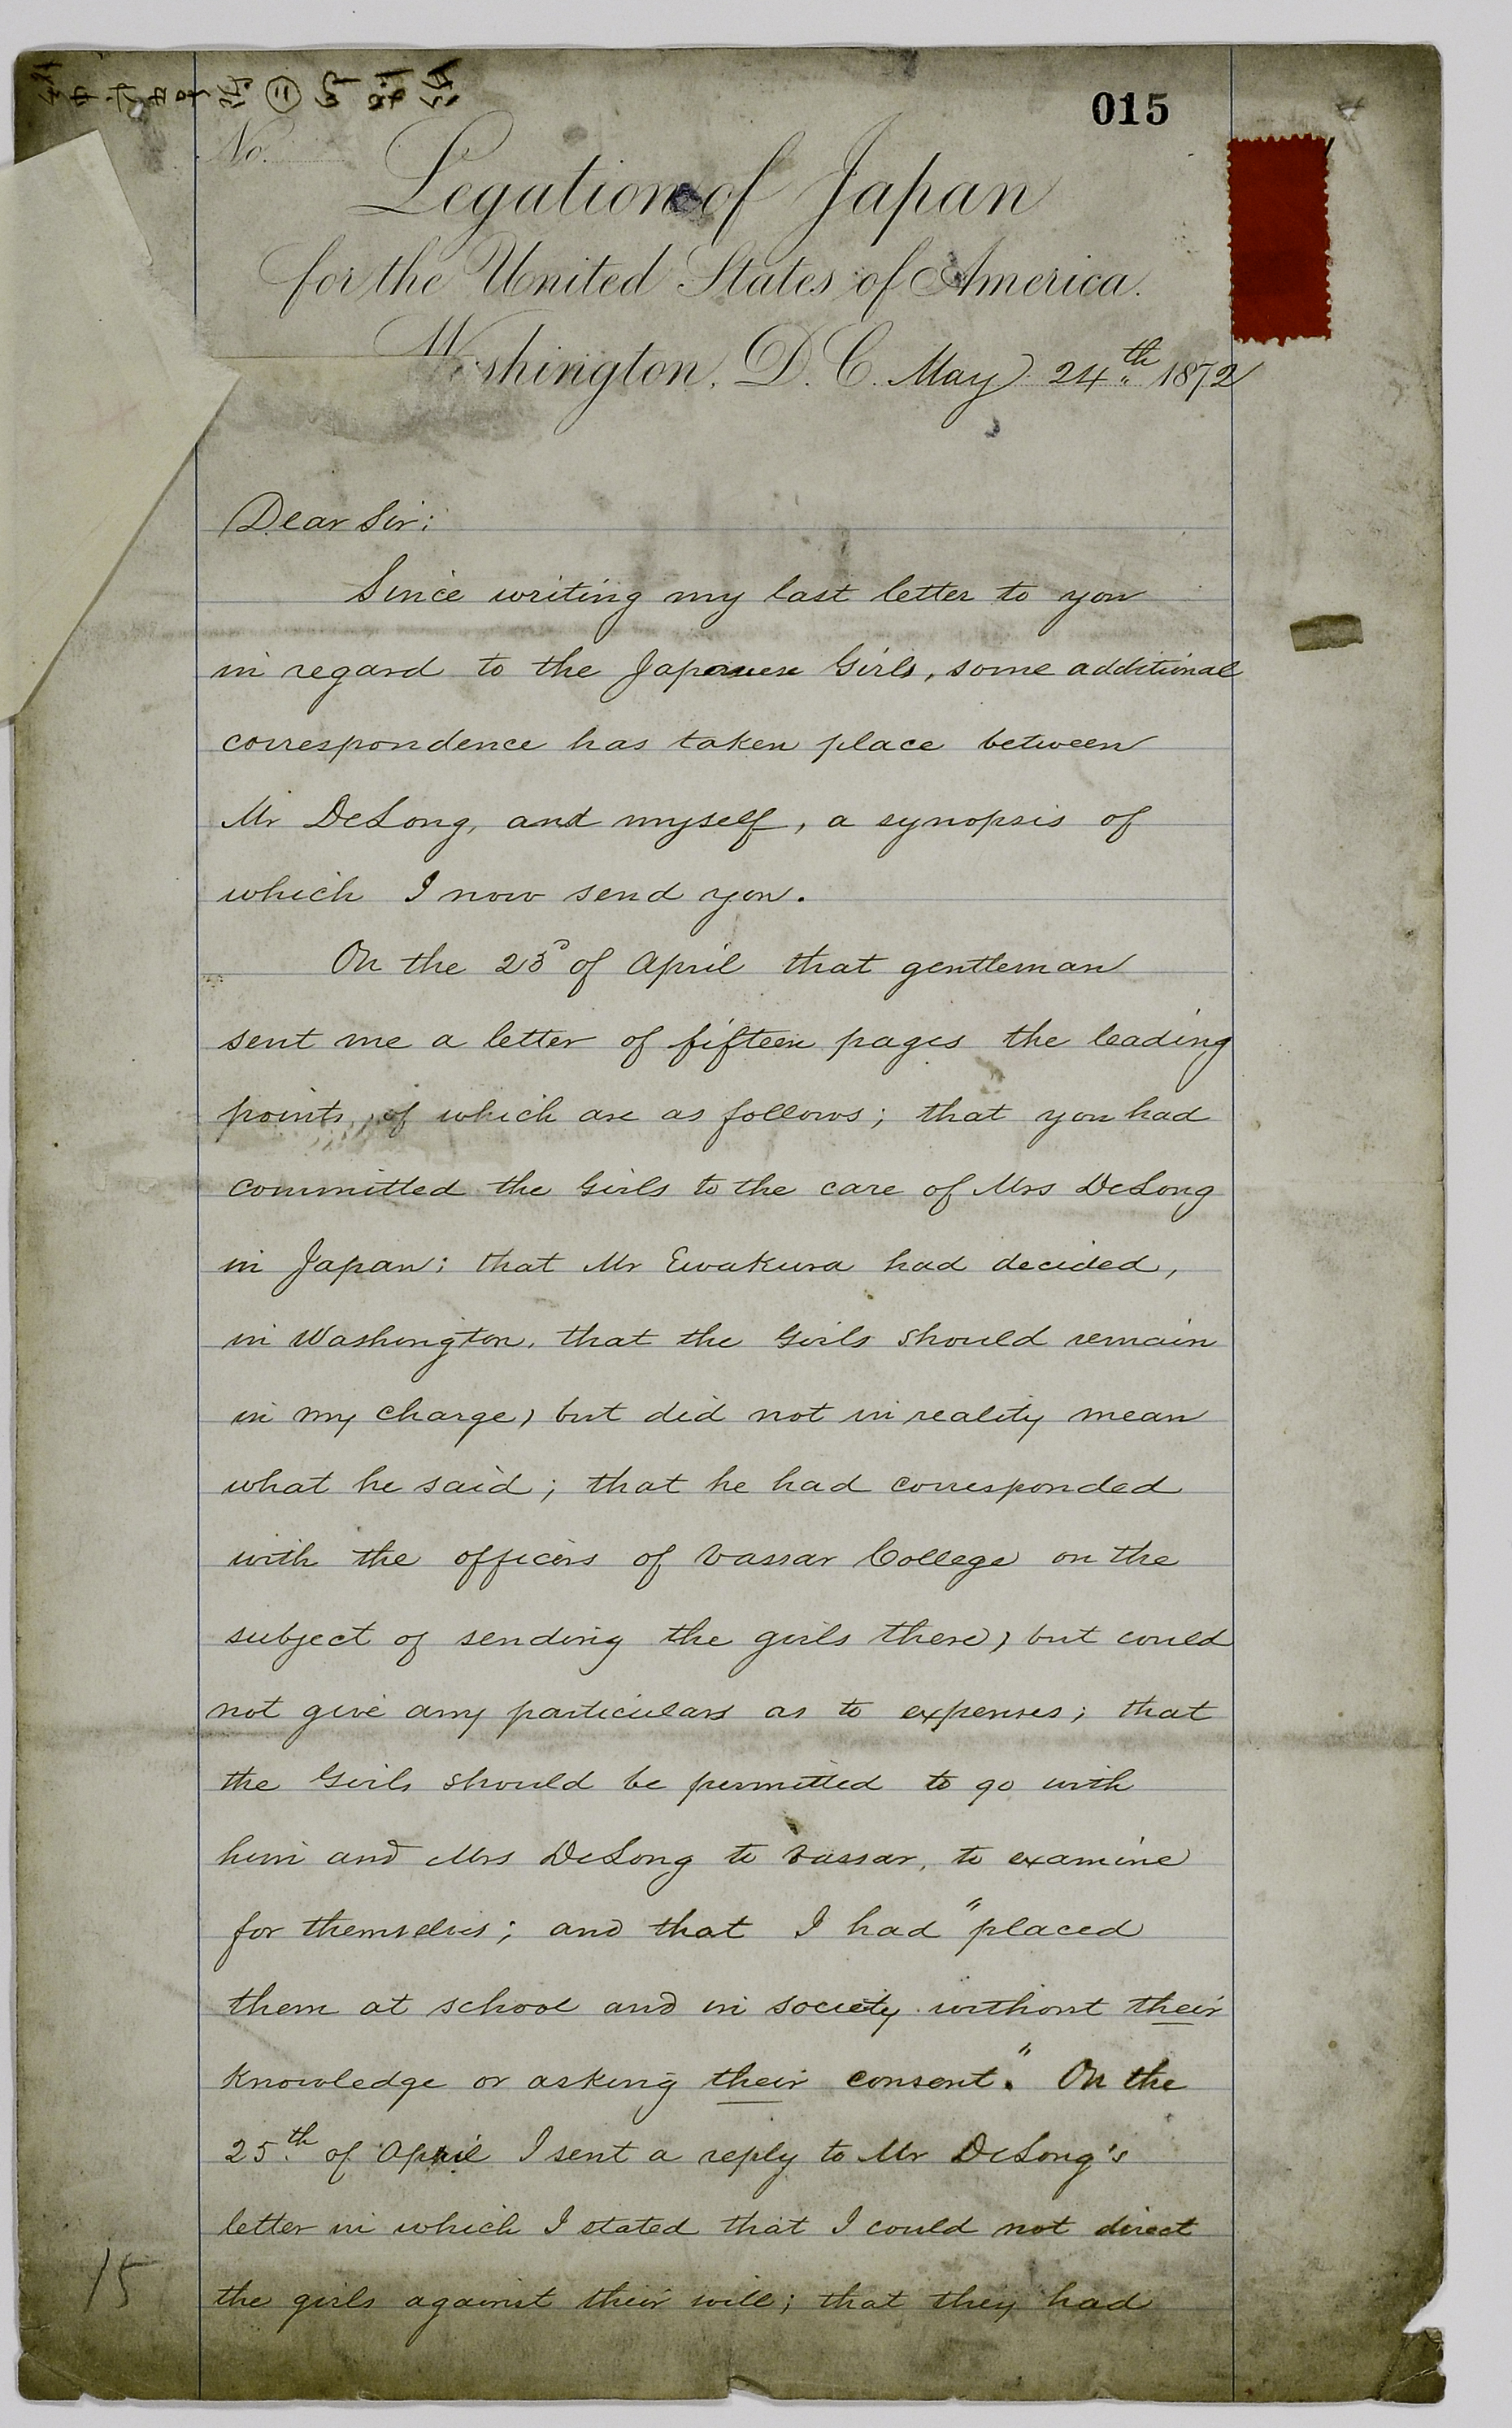 015
No.
Legation of Japan
for the United States of America.
Washington, D. C. May 24th 1872
Dear Sir:
Since writing my last letter to you
in regard to the Japanese Girls, some additional
correspondence has taken place between
Mr DeLong, and myself, a synopsis of
which I now send you.
On the 23d of April that gentleman
sent me a letter of fifteen pages the leading
points, of which are as follows; that you had
committed the Girls to the care of Mrs DeLong
in Japan; that Mr Ewakura had decided,
in Washington, that the Girls should remain
in my charge, but did not in reality mean
what he said; that he had corresponded
with the officers of Vassar College on the
subject of sending the girls there, but could
not give any particulars as to expenses; that
the Girls should be permitted to go with
him and Mrs DeLong to Vassar, to examine
for themselves; and that I had "placed
them at school and in society without their
knowledge or asking their consent." On the
25th of April I sent a reply to Mr DeLong's
letter in which I stated that I could not direct
the girls against their will; that they had
15